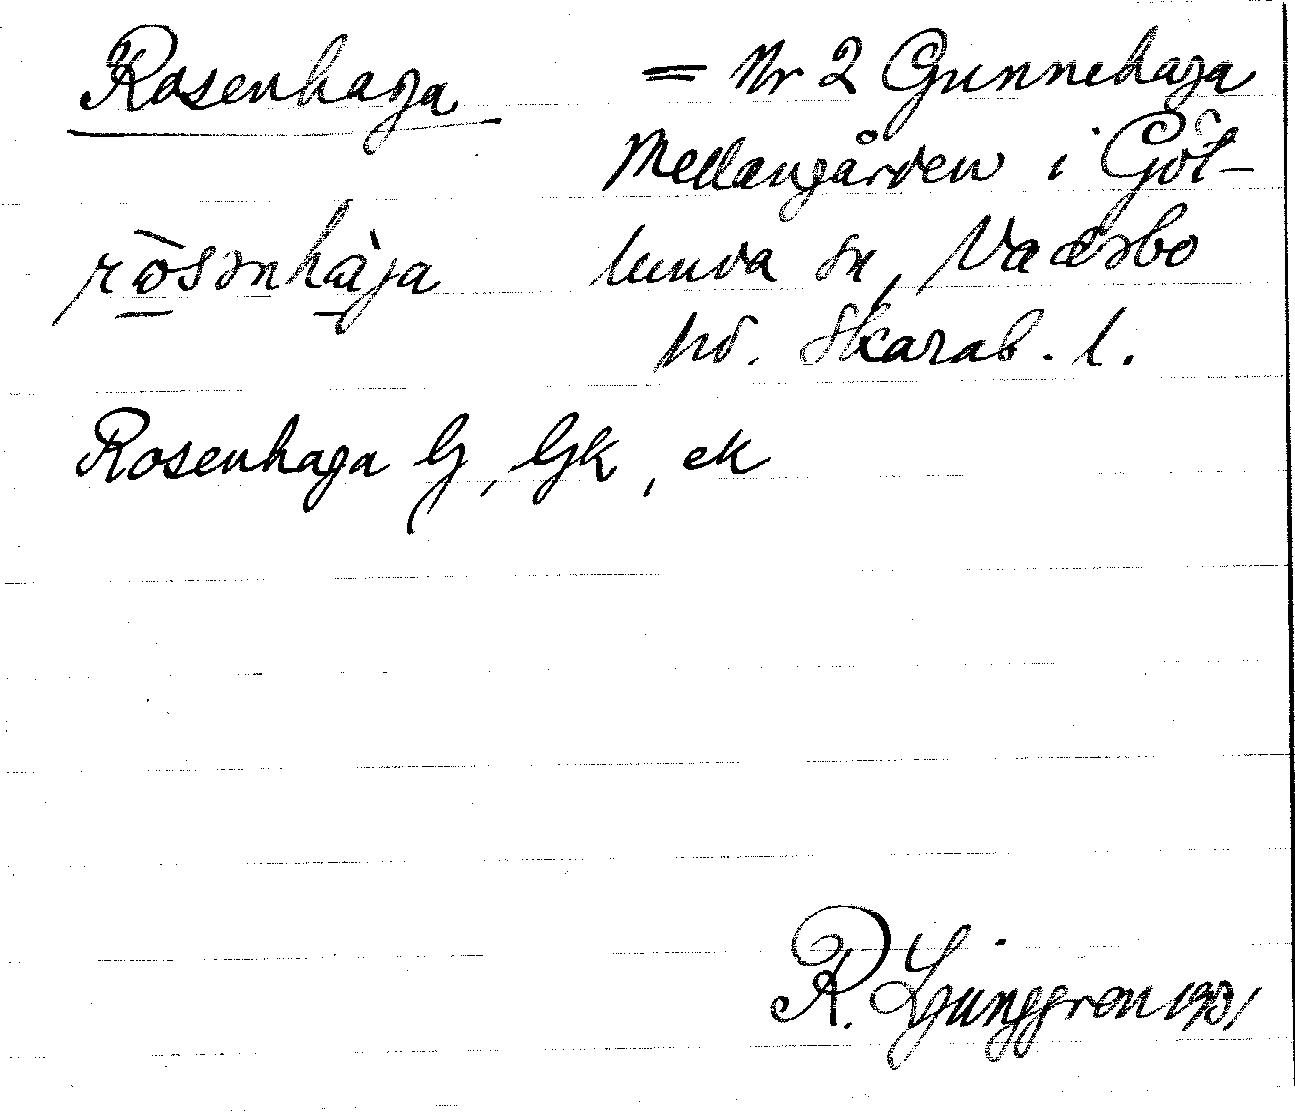 Rosenhaga = Nr 2 Gunnehaga
Mellangården i Göt-
rò̱sənhà̱ja lunda sn, Vadsbo
hd. Skarab. l.
Rosenhaga G, Gk, ek
R. Ljunggren 1931